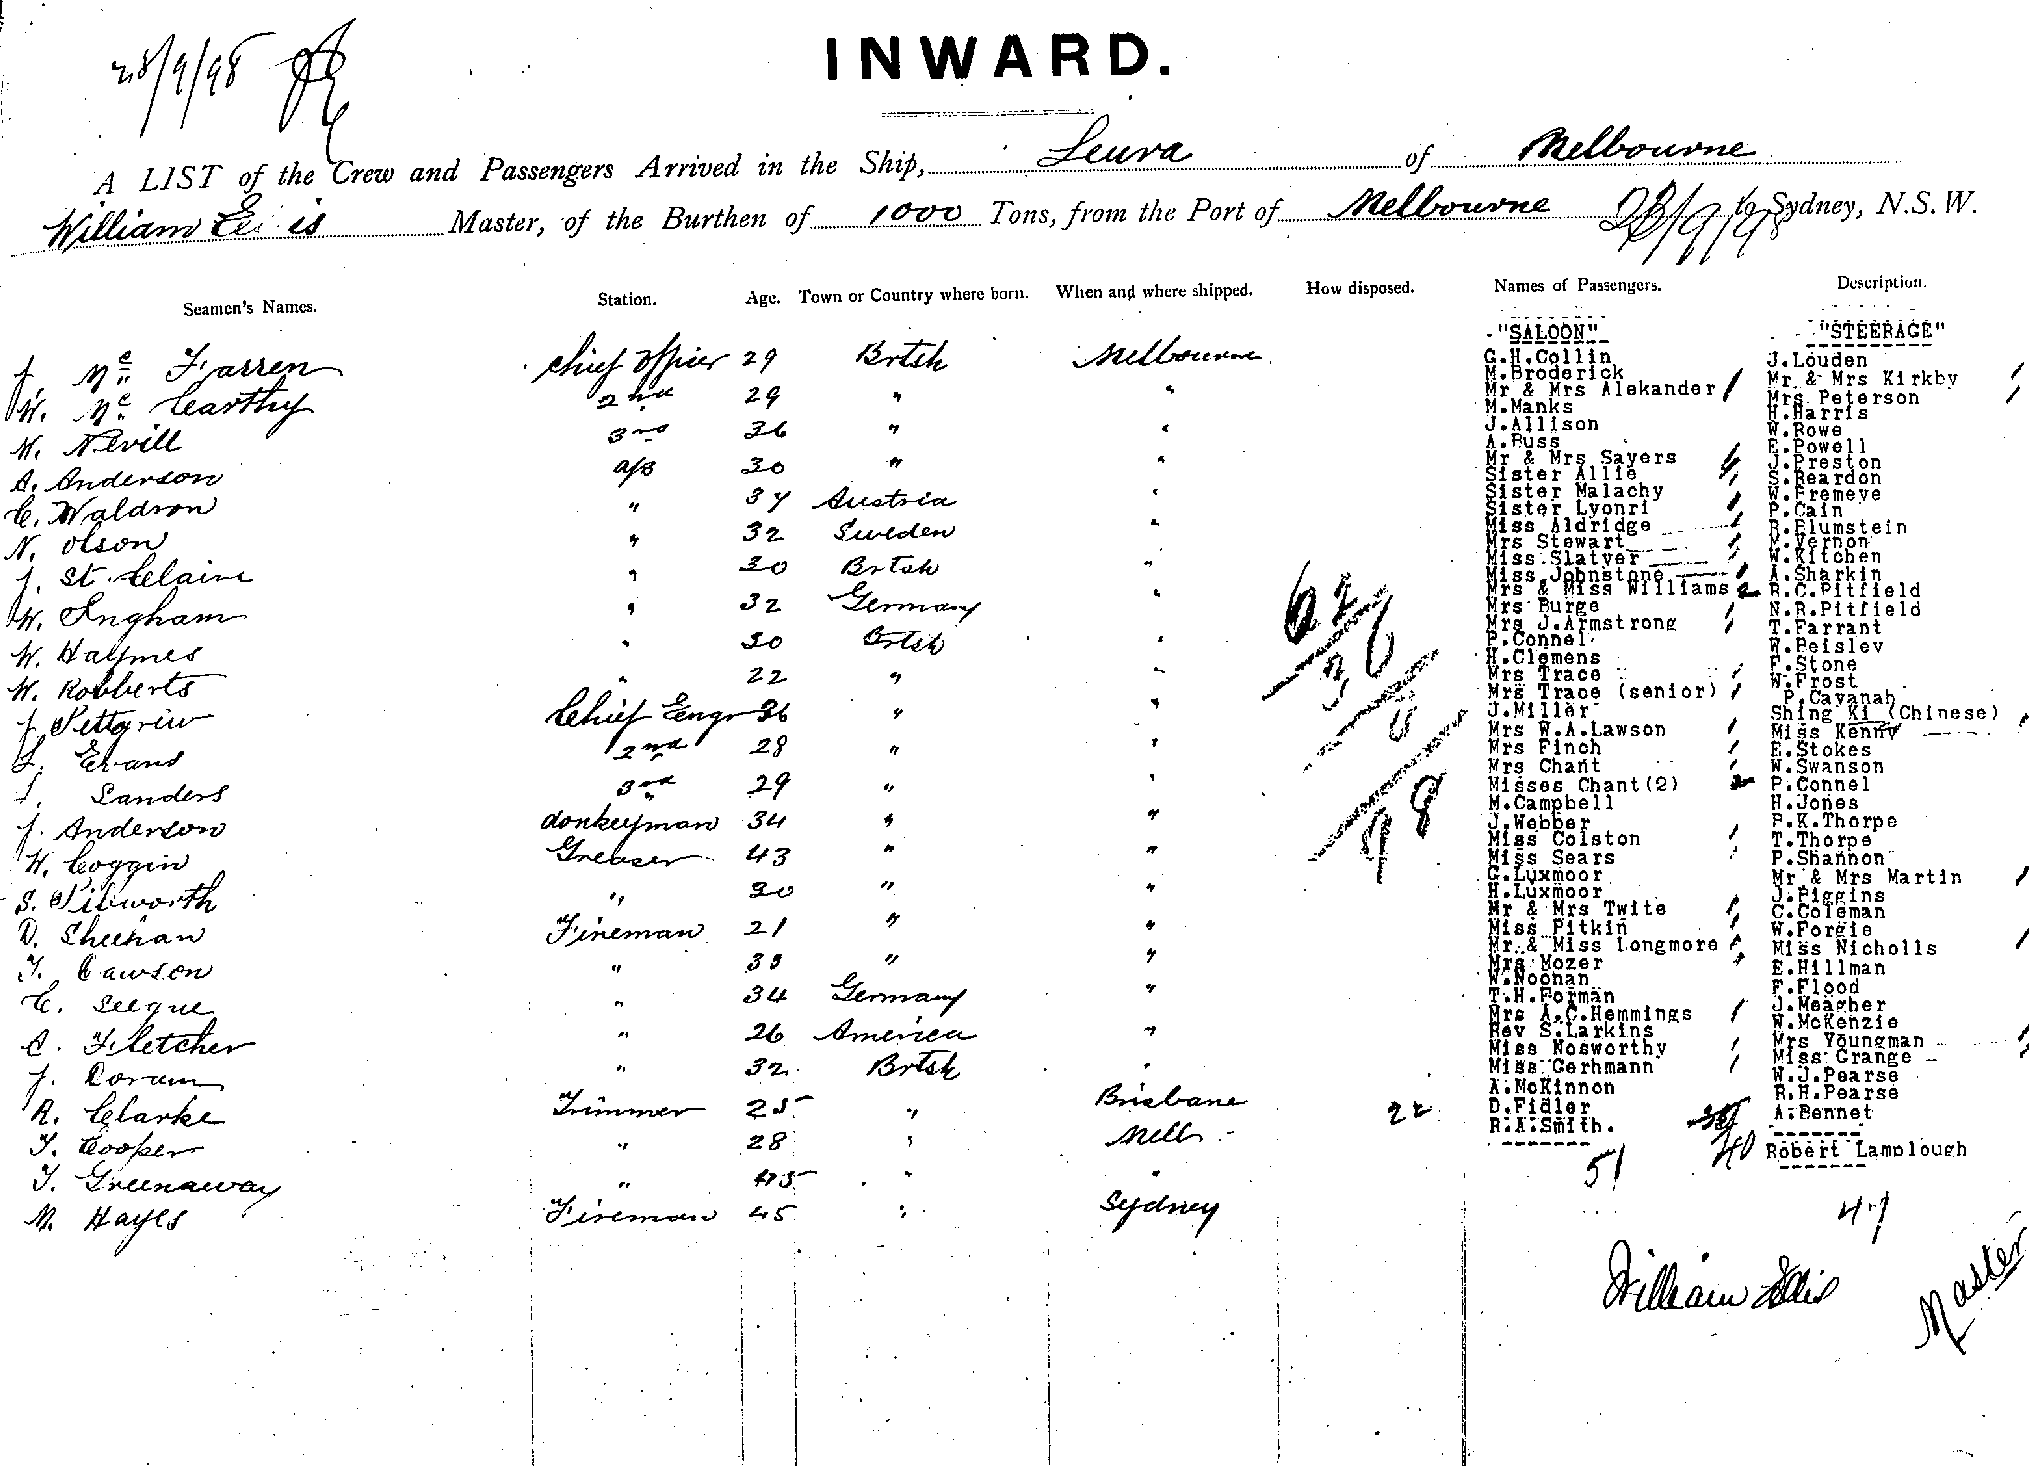 28/9/98
INWARD.
A LIST of the Crew and Passengers Arrived in the Ship, Leura of Melbourne
William Ellis Master, of the Burthen of 1000 Tons, from the Port of Melbourne 28/9/98 to Sydney, N.S.W.
Seamen's Names. Station. Age. Town or Country where born. When and where shipped. How disposed. Names of Passengers. Description.
J. Mc Farren chief officer 29 Brtsh Melbourne
W. Mc Carthy 2nd 29 " "
W. Nevill 3rd 36 " "
A. Anderson a/b 30 " "
C. Waldron " 37 Austria "
N. Olson " 32 Sweden "
J. St. Claire " 30 Brtsh "
W. Ingham " 32 Germany "
W. Haymes " 30 Brtsh "
W. Robberts " 22 " "
J. Pettgriw Chief Engr 36 " "
L. Evans 2nd 28 " "
L. Sanders 3rd 29 " "
J. Anderson donkeyman 34 " "
W. Coggin Greaser 43 " "
S. Pibworth " 30 " "
D. Sheehan Fireman 21 " "
T. Cawson " 33 " "
C. Seegue " 34 Germany "
C. Fletcher " 26 America "
J. Doram " 32 Brtsh "
R. Clarke Trimmer 25 " Brisbane
T. Cooper " 28 " Melb
T. Greenaway " 45 " "
M. Hayes Fireman 45 " Sydney
62
36
98
22
"SALOON"
G.H.Collin
M.Broderick
Mr & Mrs Alekander
M.Manks
J.Allison
A.Buss
Mr & Mrs Sayers
Sister Allie
Sister Malachy
Sister Lyonri
Miss Aldridge
Mrs Stewart
Miss Slatyer
Miss Johnstone
Mrs & Miss Williams 2
Mrs Burge
Mrs J.Armstrong
P.Connel
H.Clemens
Mrs Trace
Mrs Trace (senior)
J.Miller
Mrs W.A.Lawson
Mrs Finch
Mrs Chant
Misses Chant(2) 2
M.Campbell
J.Webber
Miss Colston
Miss Sears
G.Luxmoor
H.Luxmoor
Mr & Mrs Twite
Miss Pitkin
Mr & Miss Longmore
Mrs Mozer
W.Noonan
T.H.Forman
Mrs A.C.Hemmings
Rev S.Larkins
Miss Nosworthy
Miss Gerhmann
A.McKinnon
D.Fidler
R.A.Smith.
51
"STEERAGE"
J.Louden
Mr & Mrs Kirkby
Mrs Peterson
H.Harris
W.Rowe
E.Powell
J.Preston
S.Reardon
W.Fremeye
P.Cain
B.Blumstein
V.Vernon
W.Kitchen
A.Sharkin
R.C.Pitfield
N.R.Pitfield
T.Farrant
W.Beisley
F.Stone
W.Frost
P.Cavanah
Shing Ki (Chinese)
Miss Kenny
E.Stokes
W.Swanson
P.Connel
H.Jones
P.K.Thorpe
T.Thorpe
P.Shannon
Mr & Mrs Martin
J.Piggins
C.Coleman
W.Forgie
Miss Nicholls
E.Hillman
F.Flood
J.Meagher
W.McKenzie
Mrs Youngman
Miss Grange
W.J.Pearse
R.H.Pearse
A.Bennet
40 Robert Lamplough
47
William Ellis
Master